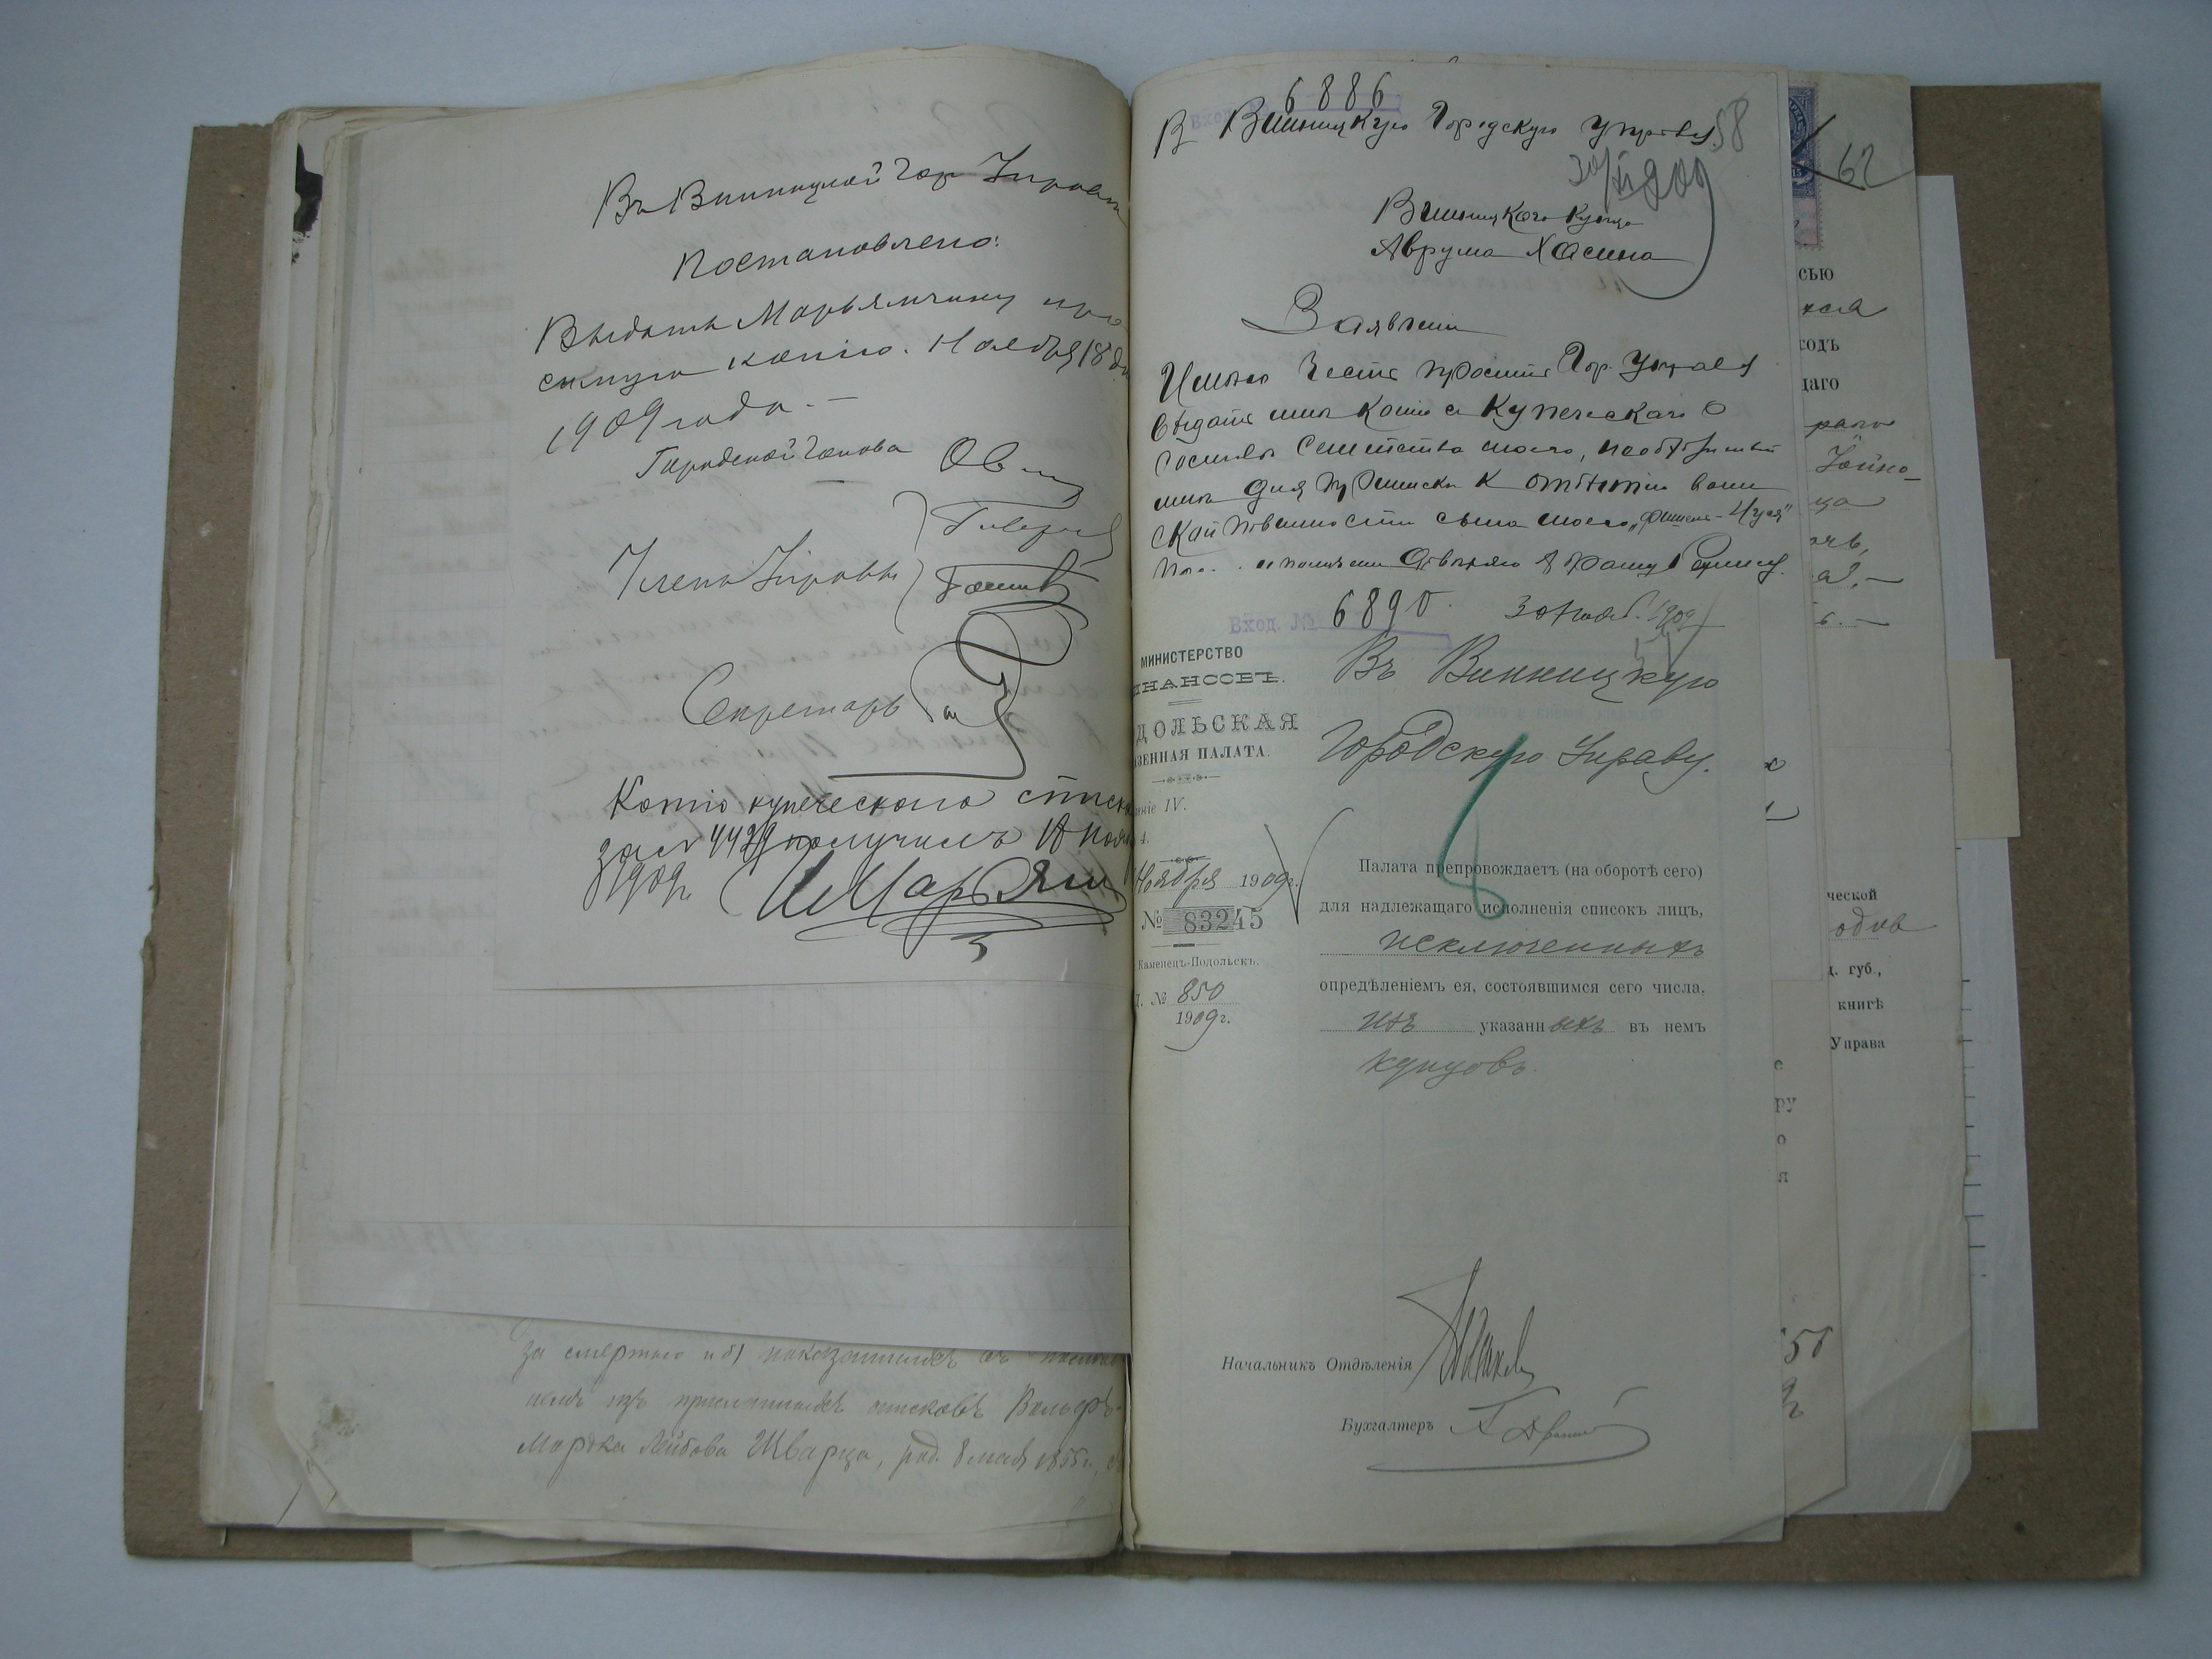 Въ Винницкой Гор Управѣ
Постановлено:
Выдать Марьямчику про
симую копію. Ноября 18 дн
1909 года. —
Городской Голова
Члены Управы
Секретарь
Копію купеческаго списка
за № 4429 получилъ 18 Нояб
1909 г.
за смертью и б) показаннымъ въ
изъ присланныхъ списковъ Вольфъ-
Мортка Лейбова Шварца, род. 8 мая 1855 г.,
6886
58
В Винницкую Городскую Управу
30/XI 909
Винницкого Купца
Аврума Хасина
Заявленіе
Имѣю честь просить Гор. Управу
выдать мнѣ копію с Купеческаго о
составѣ семейства моего,
мнѣ для приписки к отбытію воин
ской повинности сына моего
Вход. № 6890. 30 Нояб. 1909
МИНИСТЕРСТВО
ИНАНСОВЪ.
ДОЛЬСКАЯ
ЗЕННАЯ ПАЛАТА.
еніе IV.
4.
Ноября 1909 г.
№ 83245
Каменецъ-Подольскъ.
№ 850
1909 г.
Въ Винницкую
Городскую Управу.
Палата препровождаетъ (на оборотѣ сего)
для надлежащаго исполненія списокъ лицъ,
исключенныхъ
опредѣленіемъ ея, состоявшимся сего числа,
изъ указанныхъ въ немъ
купцовъ.
Начальникъ Отдѣленія
Бухгалтеръ
62
сью
ходъ
щаго
ческой
д. губ.,
книгѣ
Управа
е
ру
о
я